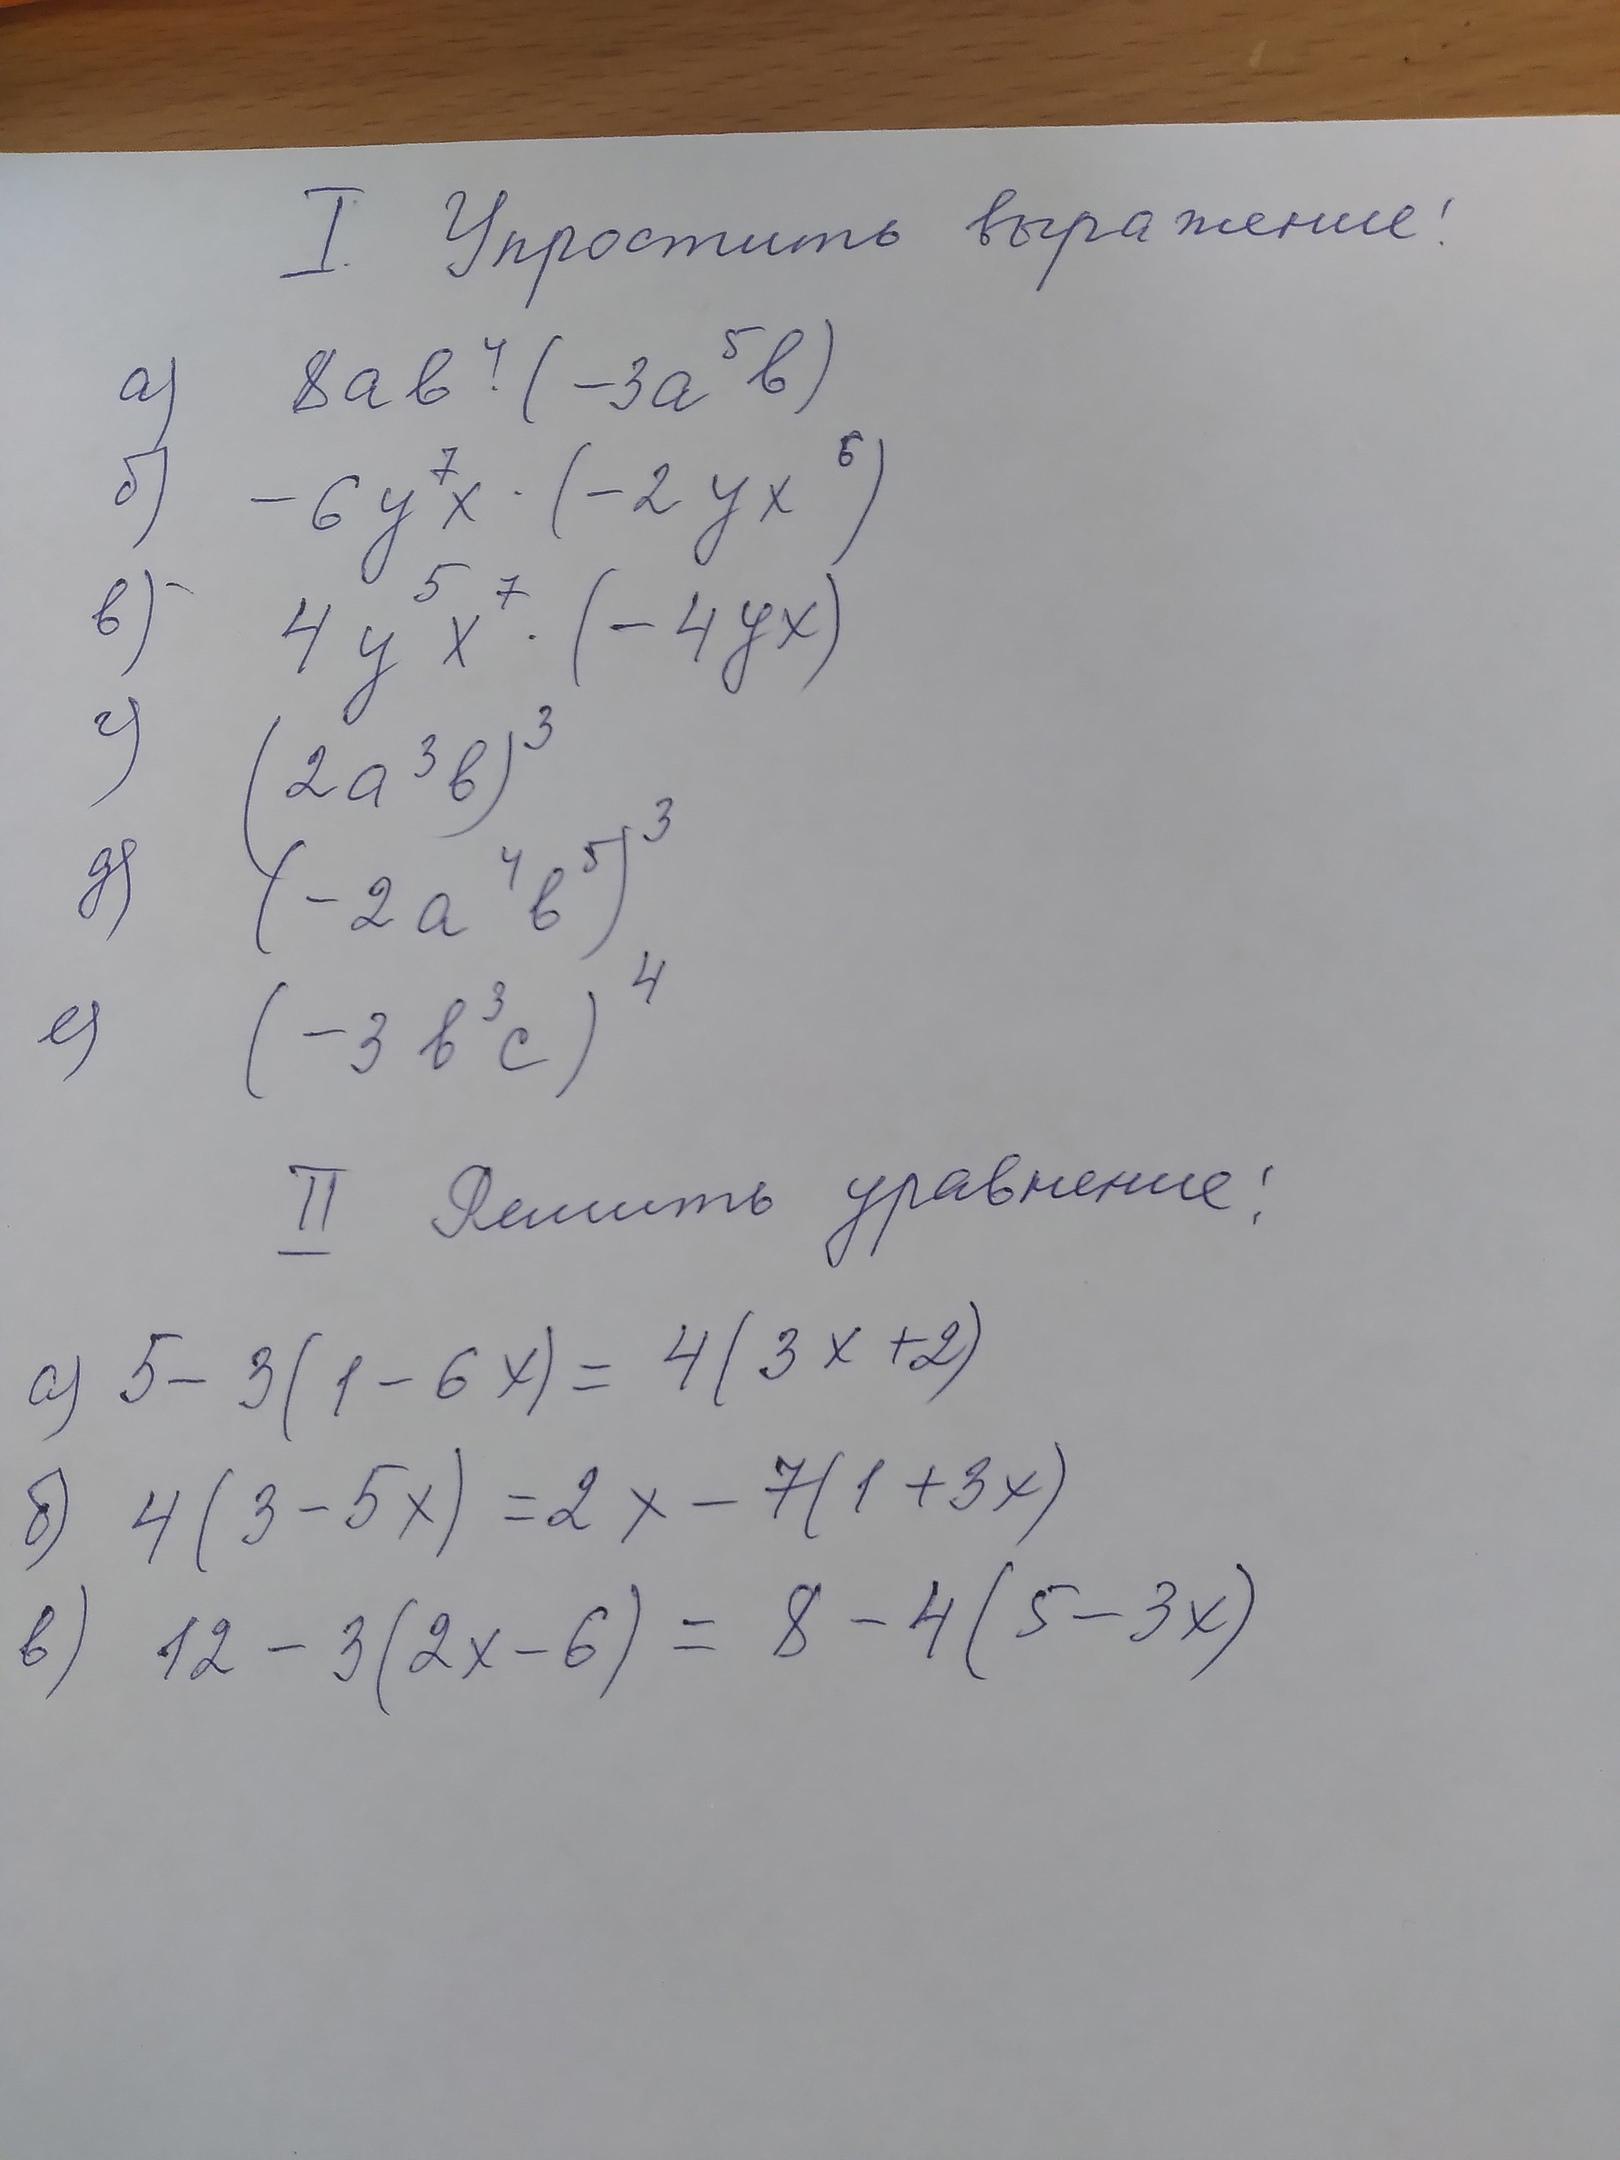 I. Упростить выражение:
а) 8ab⁴·(-3a⁵b)
б) -6y⁷x·(-2yx⁶)
в) 4y⁵x⁷·(-4yx)
г) (2a³b)³
д) (-2a⁴b⁵)³
е) (-3b³c)⁴
II Решить уравнение:
а) 5-3(1-6x)=4(3x+2)
б) 4(3-5x)=2x-7(1+3x)
в) 12-3(2x-6)=8-4(5-3x)